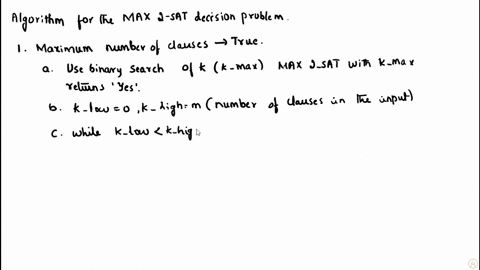 Algorithm for the MAX 2-SAT decision problem.
1. Maximum number of clauses → True.
a. Use binary search of k (k-max) MAX 2_SAT with k_max
returns 'Yes'.
b. k-low = 0, k_high = m (number of clauses in the input)
c. while k_low < k-hig